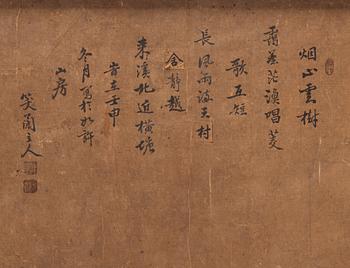 烟山雲樹
霜蒼茫漁唱菱
歌五短
長風雨滿天村
含靜越
来溪北近橫塘
旹在壬申
冬月寫於如許
山房
笑蕳主人